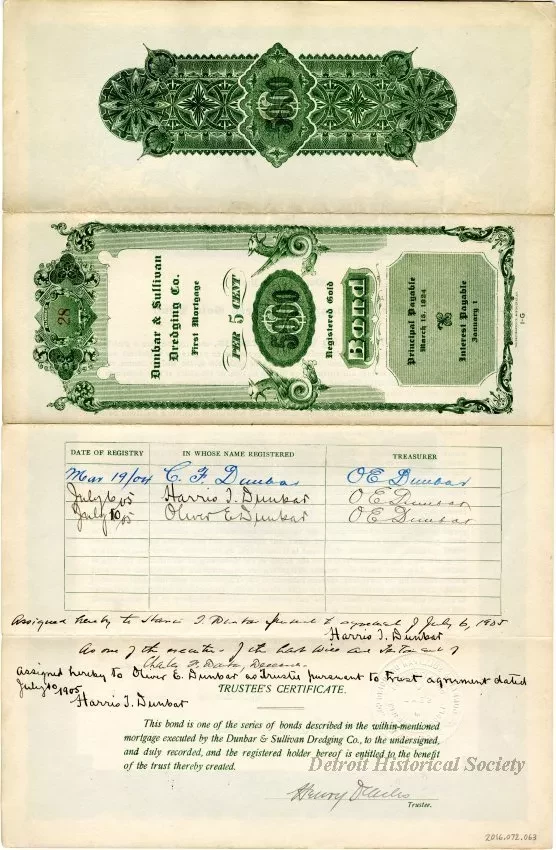 5000
28
Dunbar & Sullivan
Dredging Co.
First Mortgage
5 PER CENT
5000
Registered Gold
Bond
Principal Payable
March 15, 1924
Interest Payable
January 1
1-G
DATE OF REGISTRY IN WHOSE NAME REGISTERED TREASURER
Mar 19/04 C. F. Dunbar O E Dunbar
July 6/05 Harris T. Dunbar O E Dunbar
July 10/05 Oliver E. Dunbar O E Dunbar
Assigned hereby to Harris T. Dunbar pursuant to agreement of July 6, 1905
Harris T. Dunbar
As one of the executors of the last Will and Testament of
Deceased
Assigned hereby to Oliver E. Dunbar as Trustee pursuant to trust agreement dated
July 10 1905
Harris T. Dunbar
TRUSTEE'S CERTIFICATE.
This bond is one of the series of bonds described in the within-mentioned
mortgage executed by the Dunbar & Sullivan Dredging Co., to the undersigned,
and duly recorded, and the registered holder hereof is entitled to the benefit
of the trust thereby created.
Detroit Historical Society
Henry
Trustee.
2016.072.063